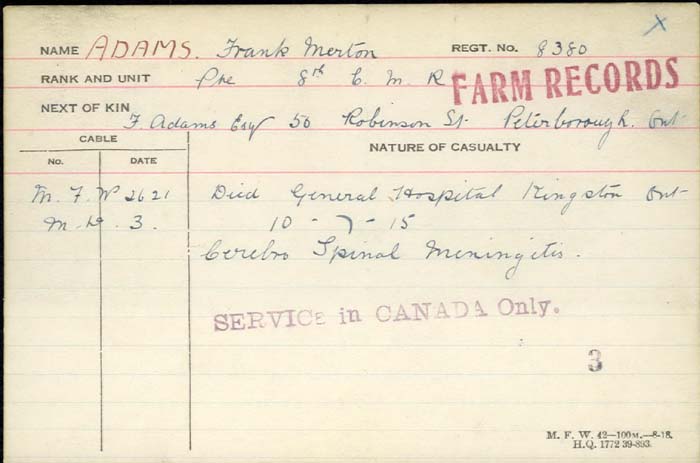 x
NAME ADAMS. Frank Merton REGT. No. 8380
RANK AND UNIT Pte 8th C. M. R
FARM RECORDS
NEXT OF KIN
F. Adams Esq 50 Robinson St. Peterborough. Ont
CABLE
NATURE OF CASUALTY
No. DATE
M. F. W 2621 Died General Hospital Kingston Ont
M. D. 3. 10 - 7 - 15
Cerebro Spinal Meningitis.
SERVICE in CANADA Only.
3
M. F. W. 42—100M.—8-18.
H.Q. 1772 39-893.